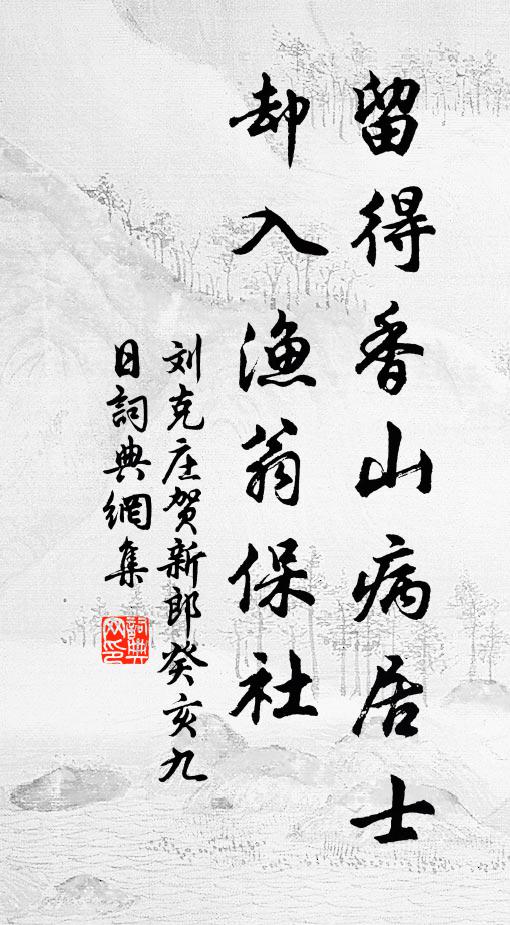 留得香山病居士
却入渔翁保社
刘克庄贺新郎癸亥九
日詞典網集
詞典
网印